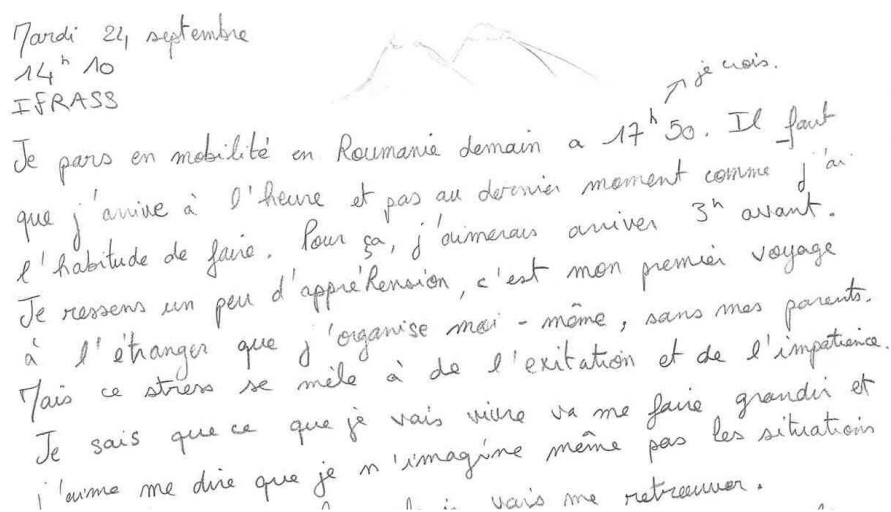 Mardi 24 septembre
14h 10
IFRASS
je crois.
Je pars en mobilité en Roumanie demain a 17h 50. Il faut
que j'arrive à l'heure et pas au dernier moment comme j'ai
l'habitude de faire. Pour ça, j'aimerais arriver 3h avant.
Je ressens un peu d'appréhension, c'est mon premier voyage
à l'étranger que j'organise moi-même, sans mes parents.
Mais ce stress se mêle à de l'exitation et de l'impatience.
Je sais que ce que je vais vivre va me faire grandir et
j'aime me dire que je n'imagine même pas les situations
vais me retrouver.